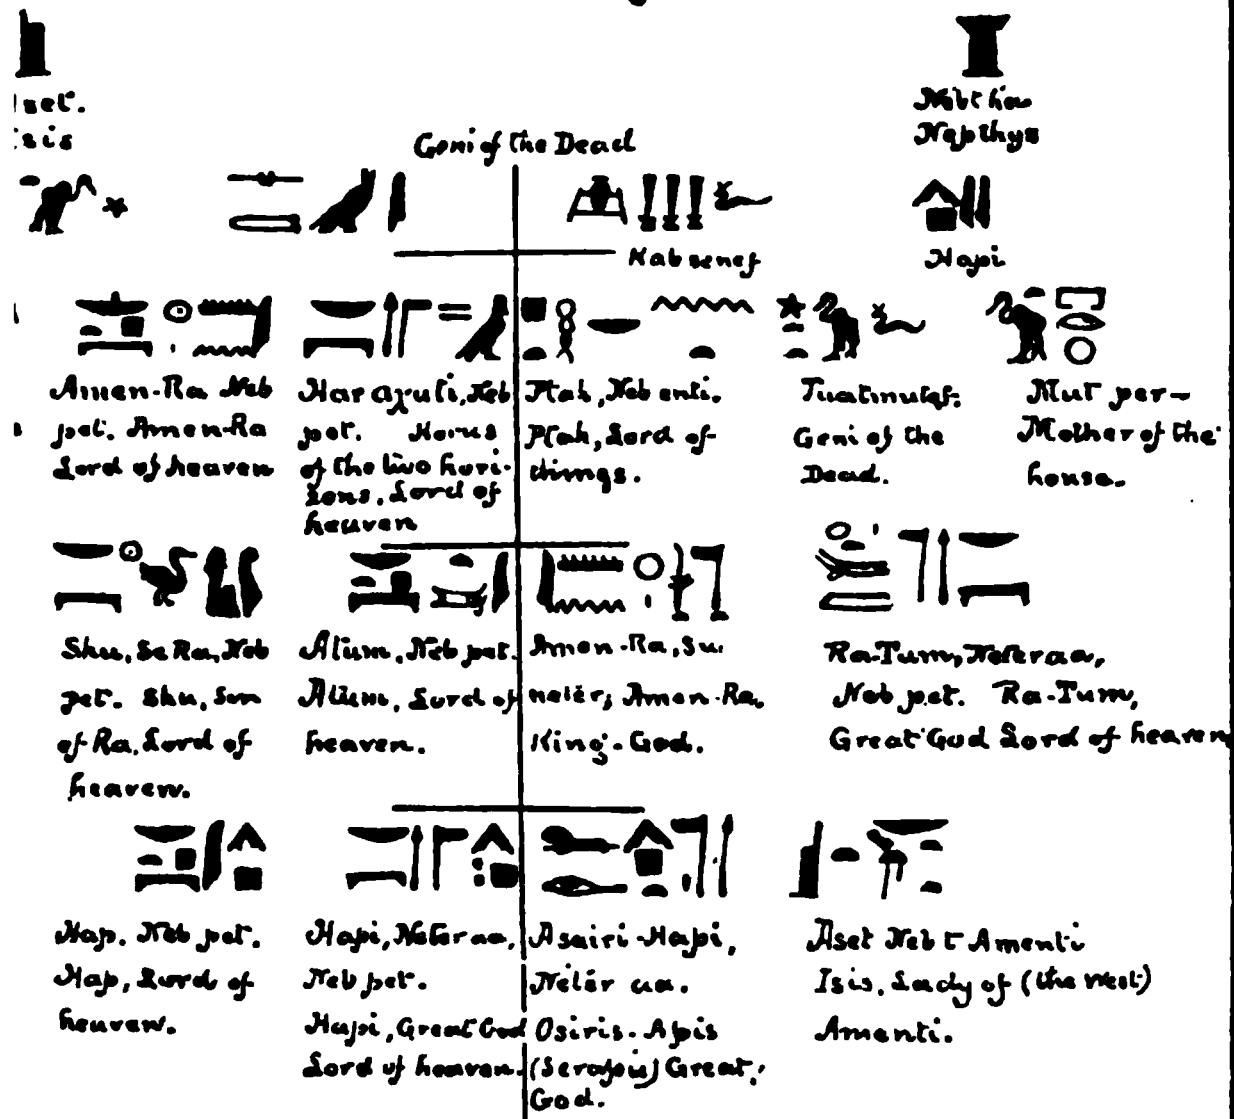 set.
sis
Nebt ha
Nepthys
Geni of the Dead
Kabsenef
Hapi
Amen-Ra Neb
pet. Amen-Ra
Lord of heaven
Har axuti, Neb
pet. Horus
of the two hori-
zons, Lord of
heaven
Ptah, Neb enti.
Ptah, Lord of
things.
Tuatmutef.
Geni of the
Dead.
Mut per-
Mother of the
house.
Shu, Se Ra, Neb
pet. Shu, Son
of Ra, Lord of
heaven.
Atum, Neb pet.
Atum, Lord of
heaven.
Amen-Ra, Su.
neter; Amen-Ra,
King-God.
Ra-Tum, Neteraa,
Neb pet. Ra-Tum,
Great God Lord of heaven
Hap. Neb pet.
Hap, Lord of
heaven.
Hapi, Neteraa,
Neb pet.
Hapi, Great God
Lord of heaven.
Asairi-Hapi,
Neter aa.
Osiris-Apis
(Serapis) Great
God.
Aset Neb t Amenti
Isis, Lady of (the west)
Amenti.